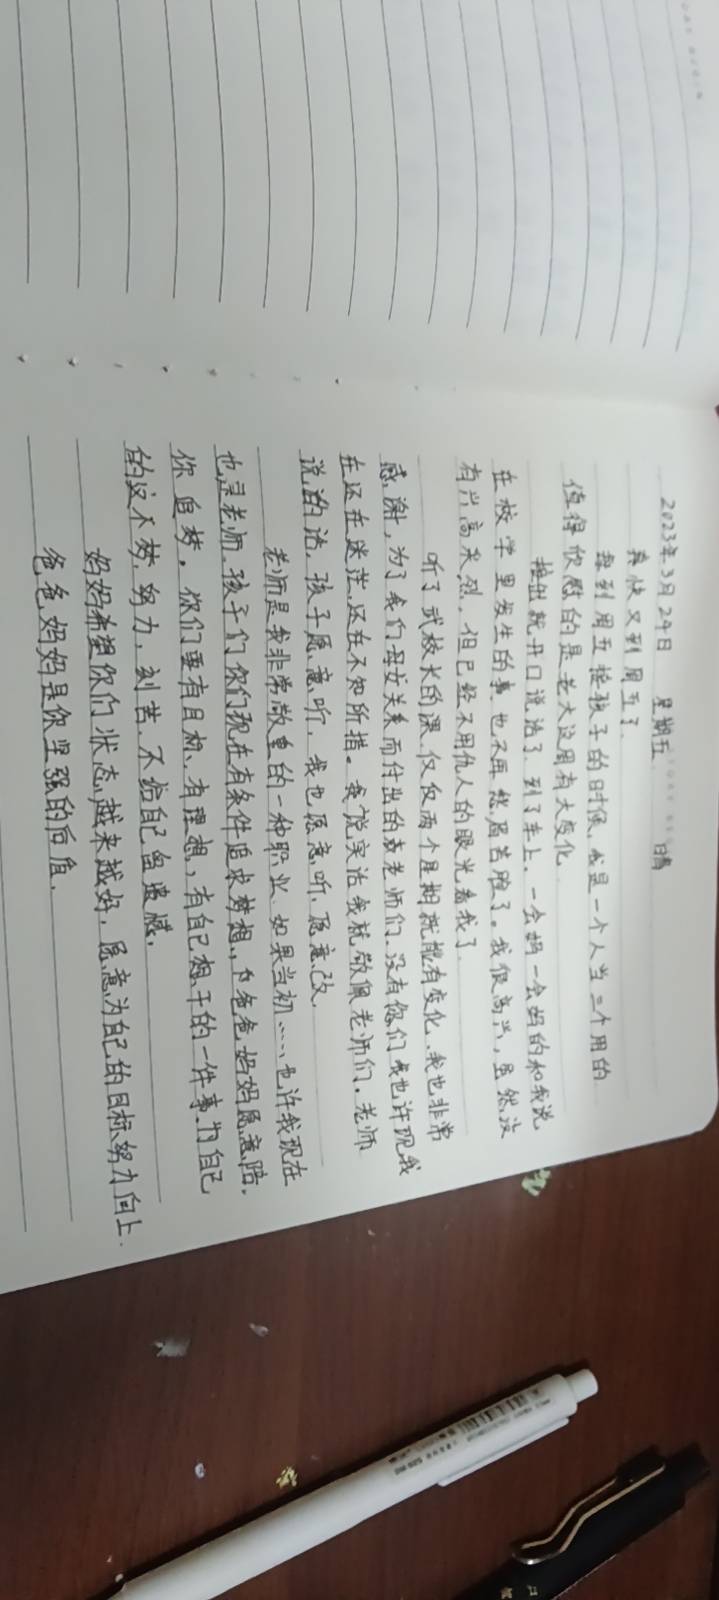 2023年3月24日 星期五 晴
真快又到周五了.
每到周五接孩子的时候,我是一个人当三个用的
值得欣慰的是老大这周有大变化.
接他就开口说话了,到了车上,一会妈一会妈的和我说
在校学里发生的事,也不再愁眉苦脸了。我很高兴,虽然没
有兴高采烈,但已经不用仇人的眼光看我了.
听了武校长的课,仅仅两个星期就能有变化,我也非常
感谢,为了我们母女关系而付出的老师们,没有你们我也许现我
在还在迷茫,还在不知所措。我说实话我就敬佩老师们。老师
说的话,孩子愿意听,我也愿意听,愿意改.
老师是我非常敬重的一种职业,如果当初……也许我现在
也是老师,孩子们你们现在有条件追求梦想,,爸爸妈妈愿意陪.
你追梦。你们要有目标,有理想,有自己想干的一件事,为自己
的这个梦,努力,刻苦,不给自己留遗憾.
妈妈希望你们状态越来越好,愿意为自己的目标努力向上.
爸爸,妈妈是你坚强的后盾.